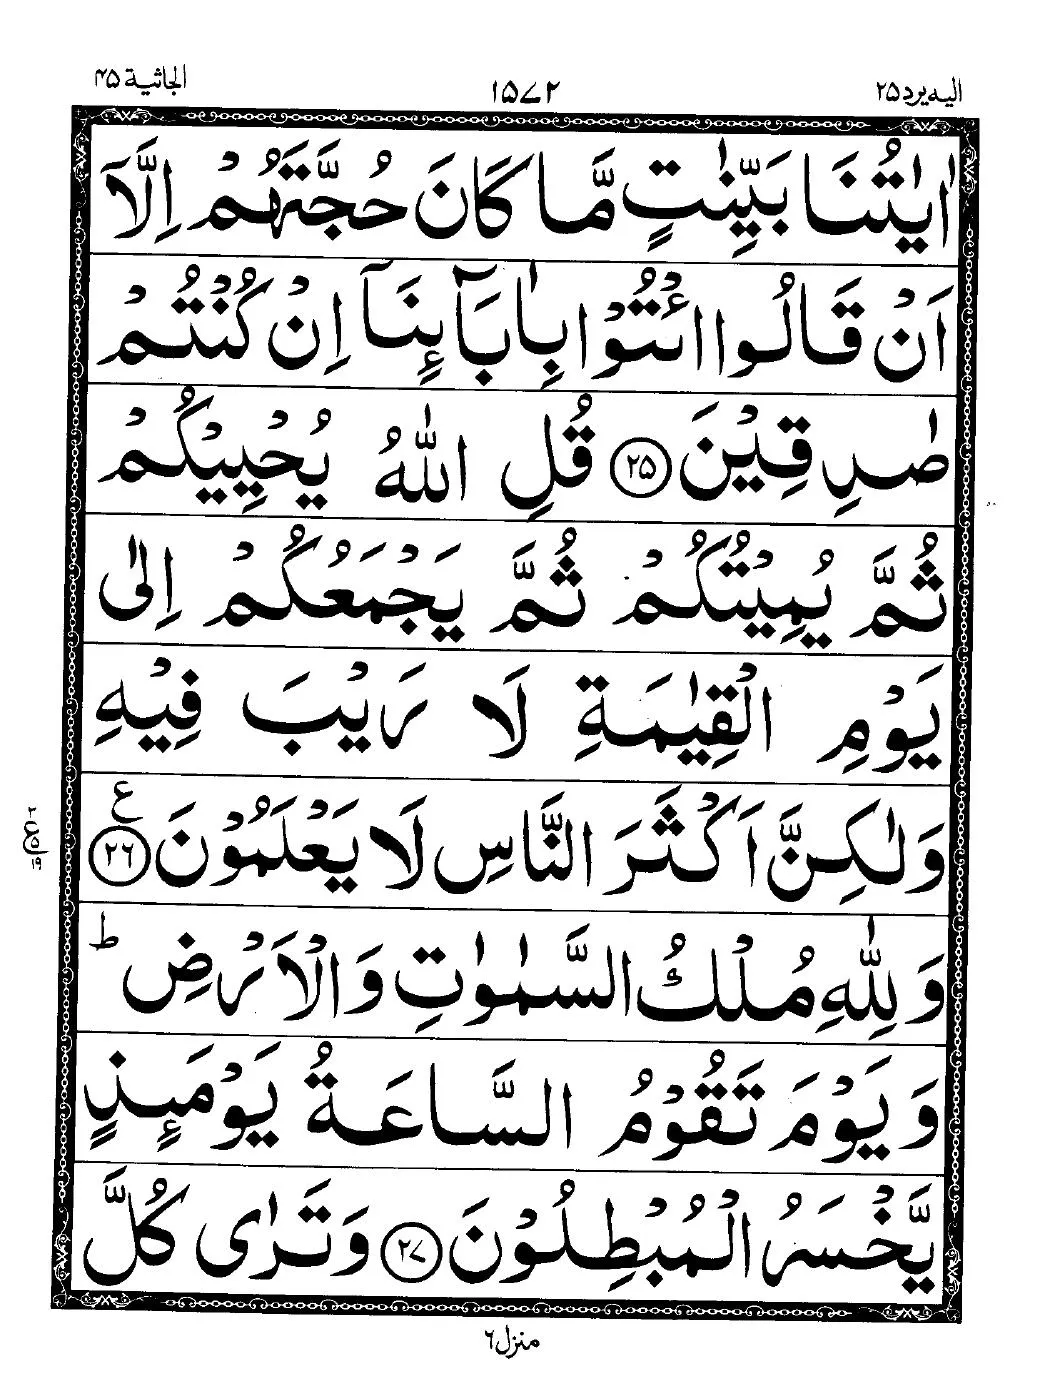 الیه یرد ۲۵
۱۵۷۲
الجاثیة ۴۵
اٰيٰتُنَا بَيِّنٰتٍ مَّا كَانَ حُجَّتَهُمْ اِلَّآ
اَنْ قَالُوا ائْتُوْا بِاٰبَآئِنَآ اِنْ كُنْتُمْ
صٰدِقِيْنَ ﴿۲۵﴾ قُلِ اللّٰهُ يُحْيِيْكُمْ
ثُمَّ يُمِيْتُكُمْ ثُمَّ يَجْمَعُكُمْ اِلٰى
يَوْمِ الْقِيٰمَةِ لَا رَيْبَ فِيْهِ
وَلٰكِنَّ اَكْثَرَ النَّاسِ لَا يَعْلَمُوْنَ ﴿۲۶﴾ ع
۲
ع
۵
۱۹
وَلِلّٰهِ مُلْكُ السَّمٰوٰتِ وَالْاَرْضِ ط
وَيَوْمَ تَقُوْمُ السَّاعَةُ يَوْمَئِذٍ
يَّخْسَرُ الْمُبْطِلُوْنَ ﴿۲۷﴾ وَتَرٰى كُلَّ
منزل ۶